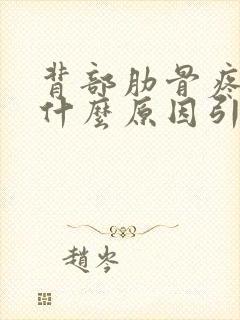 背部肋骨疼
什麼原因引
趙岑